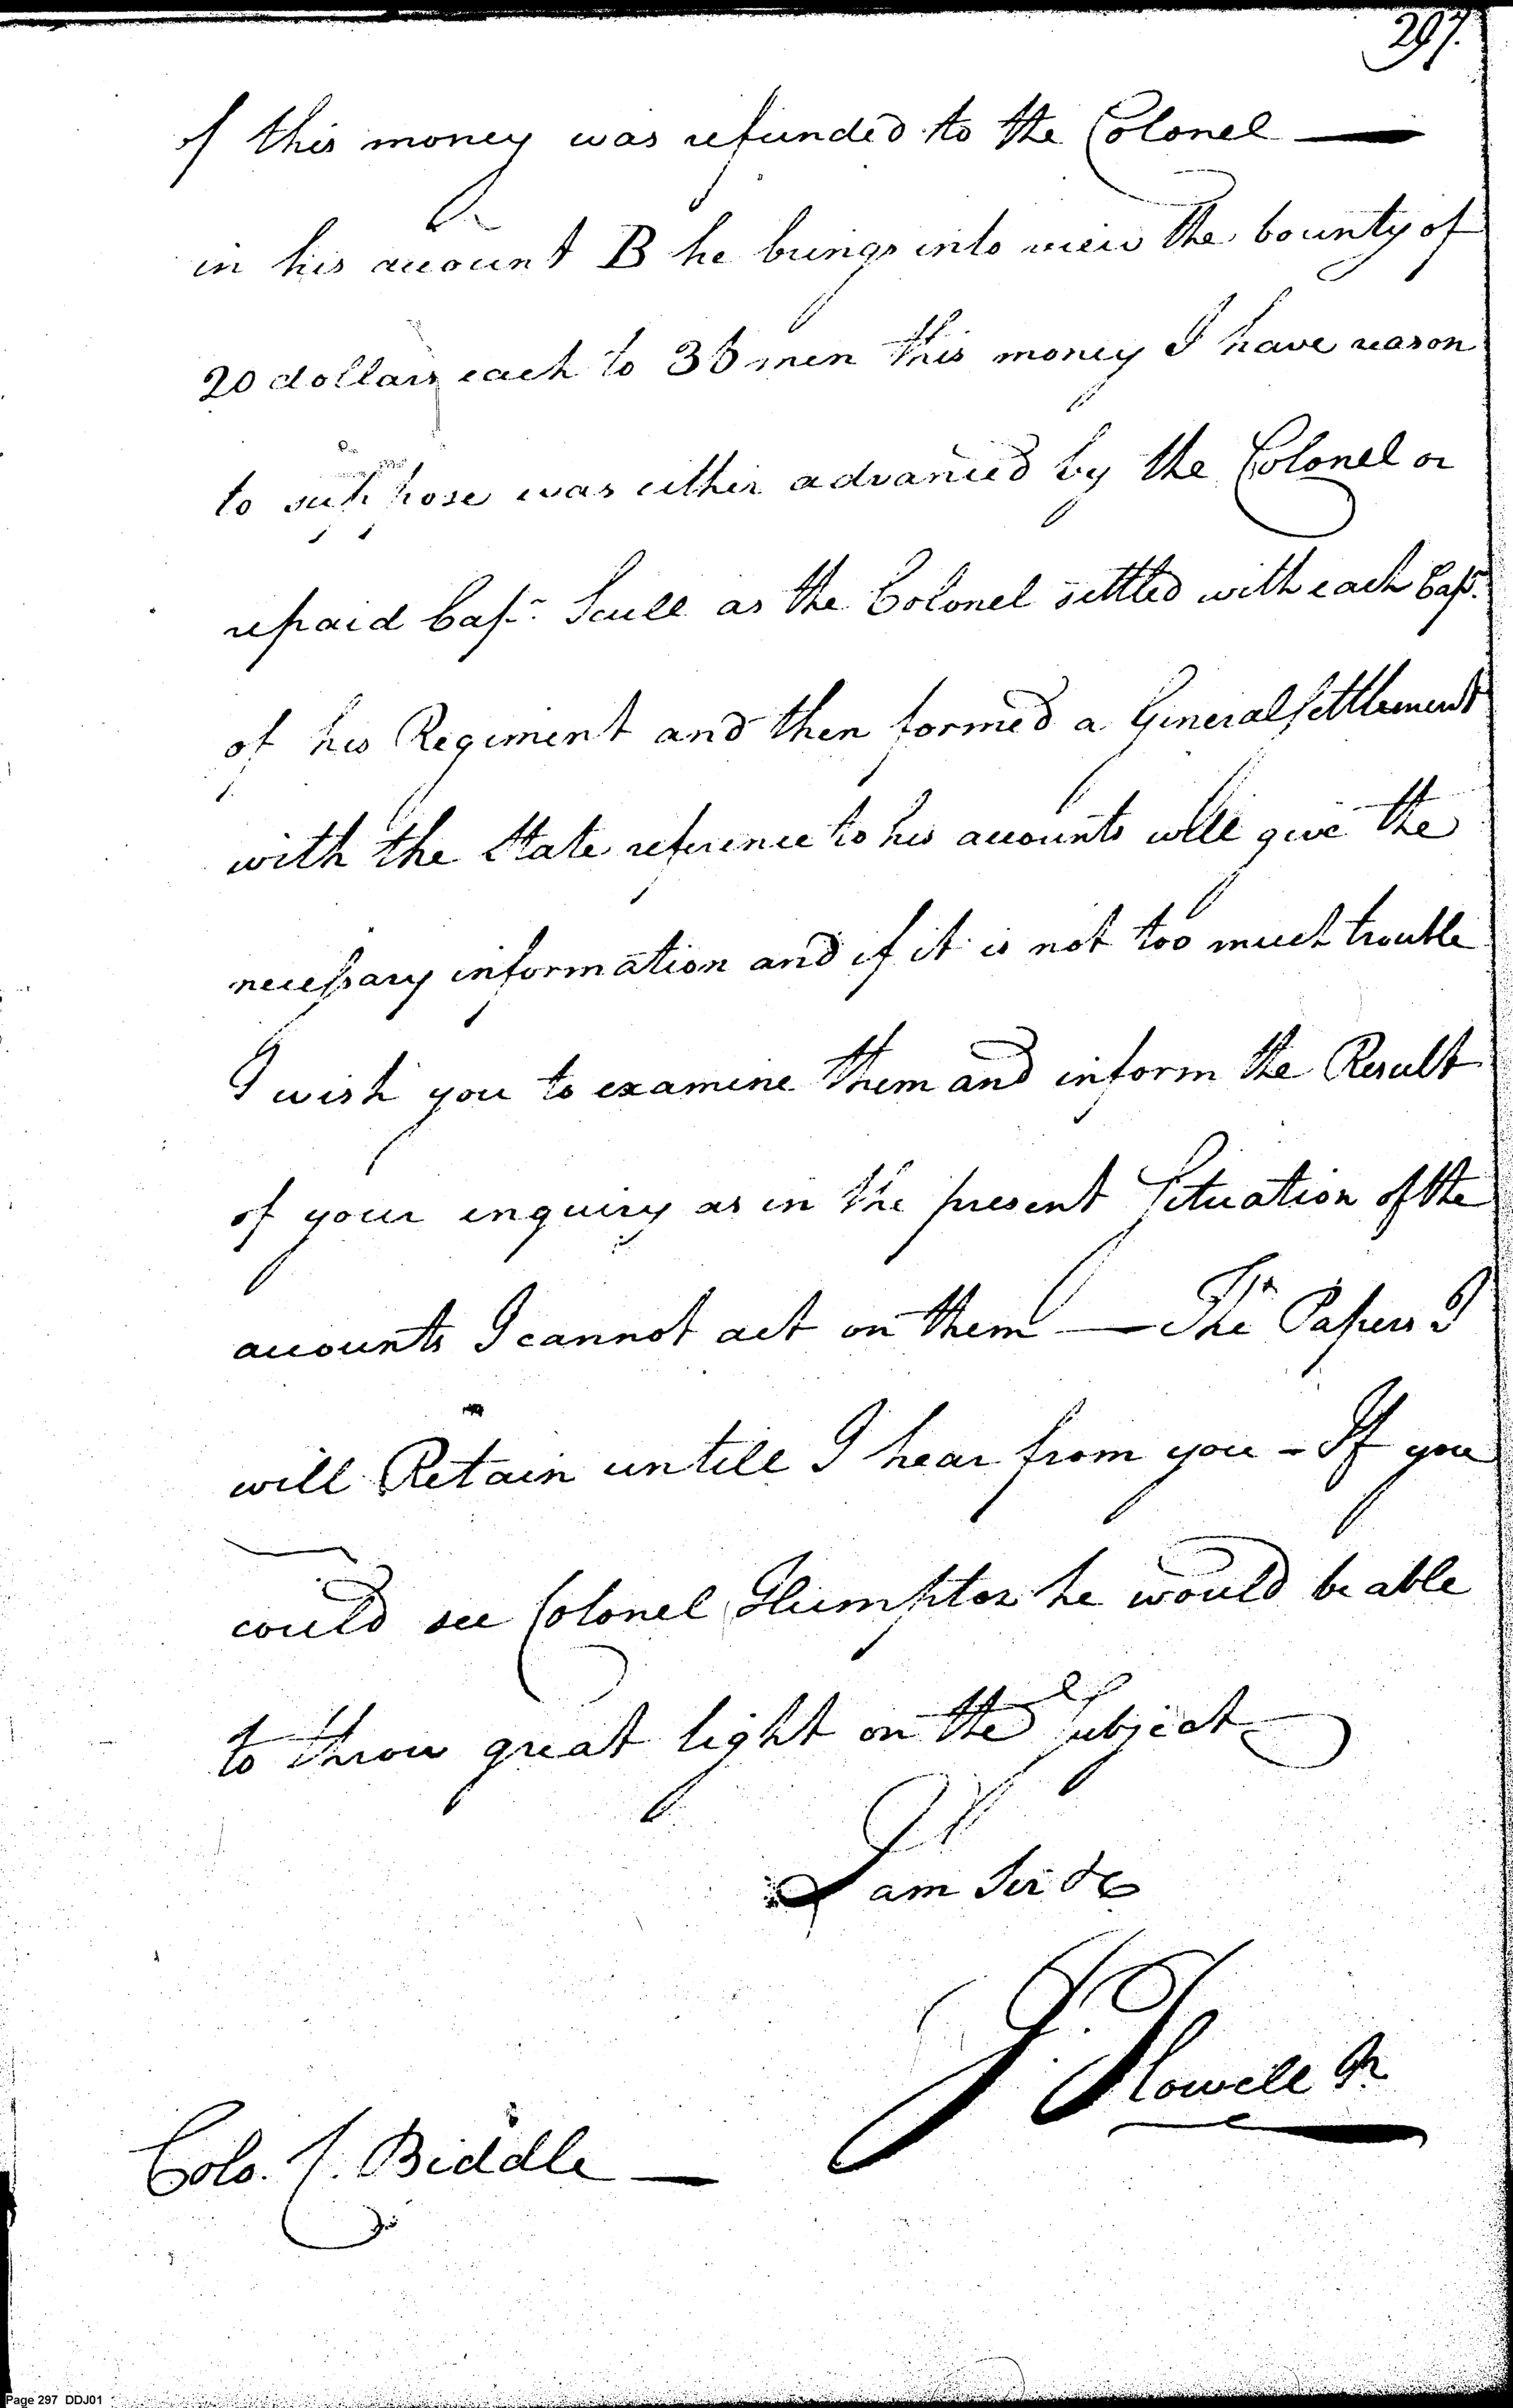 297.
of this money was refunded to the Colonel —
in his account B he brings into view the bounty of
20 dollars each to 36 men this money I have reason
to suppose was either advanced by the Colonel or
repaid Capt. Scull as the Colonel settled with each Capt.
of his Regiment and then formed a General Settlement
with the State reference to his accounts will give the
necessary information and if it is not too much trouble
I wish you to examine them and inform the Result
of your enquiry as in the present Situation of the
accounts I cannot act on them — The Papers I
will Retain untill I hear from you - If you
could see Colonel Humpton he would be able
to throw great light on the Subject
I am Sir &c
J. Howell Jr.
Colo. C. Biddle —
Page 297 DDJ01